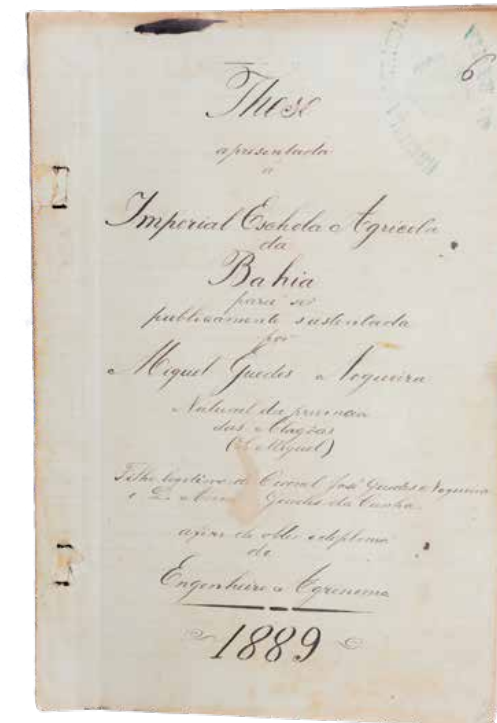 6
These
apresentada
a
Imperial Eschola Agricola
da
Bahia
para ser
publicamente sustentada
por
Miguel Guedes Nogueira
Natural da provincia
das Alagôas
(S. Miguel)
Filho legitimo de Coronel José Guedes Nogueira
e D. Guedes da Cunha
afim de obter o diploma
de
Engenheiro Agronomo
1889